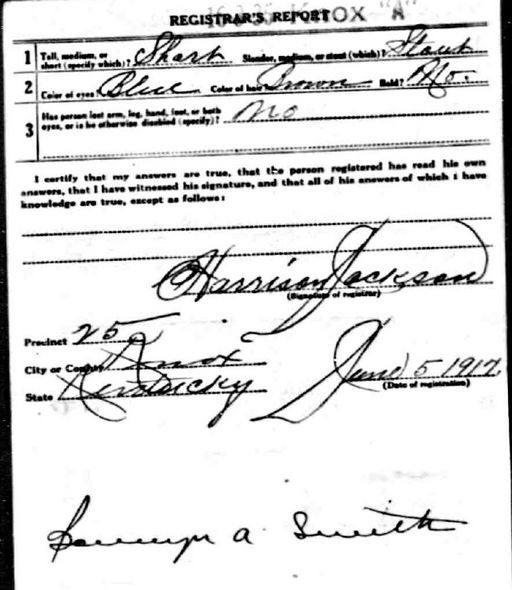 REGISTRAR'S REPORT OX "A"
1 Tall, medium, or short (specify which)? Short Slender, medium, or stout (which)? Stout
2 Color of eyes? Blue Color of hair? Brown Bald? No.
3 Has person lost arm, leg, hand, foot, or both eyes, or is he otherwise disabled (specify)? No
I certify that my answers are true, that the person registered has read his own
answers, that I have witnessed his signature, and that all of his answers of which I have
knowledge are true, except as follows:
Harrison Jackson
(Signature of registrar)
Precinct 25
City or County Knox
State Kentucky
June 5 1917.
(Date of registration)
A. Smith